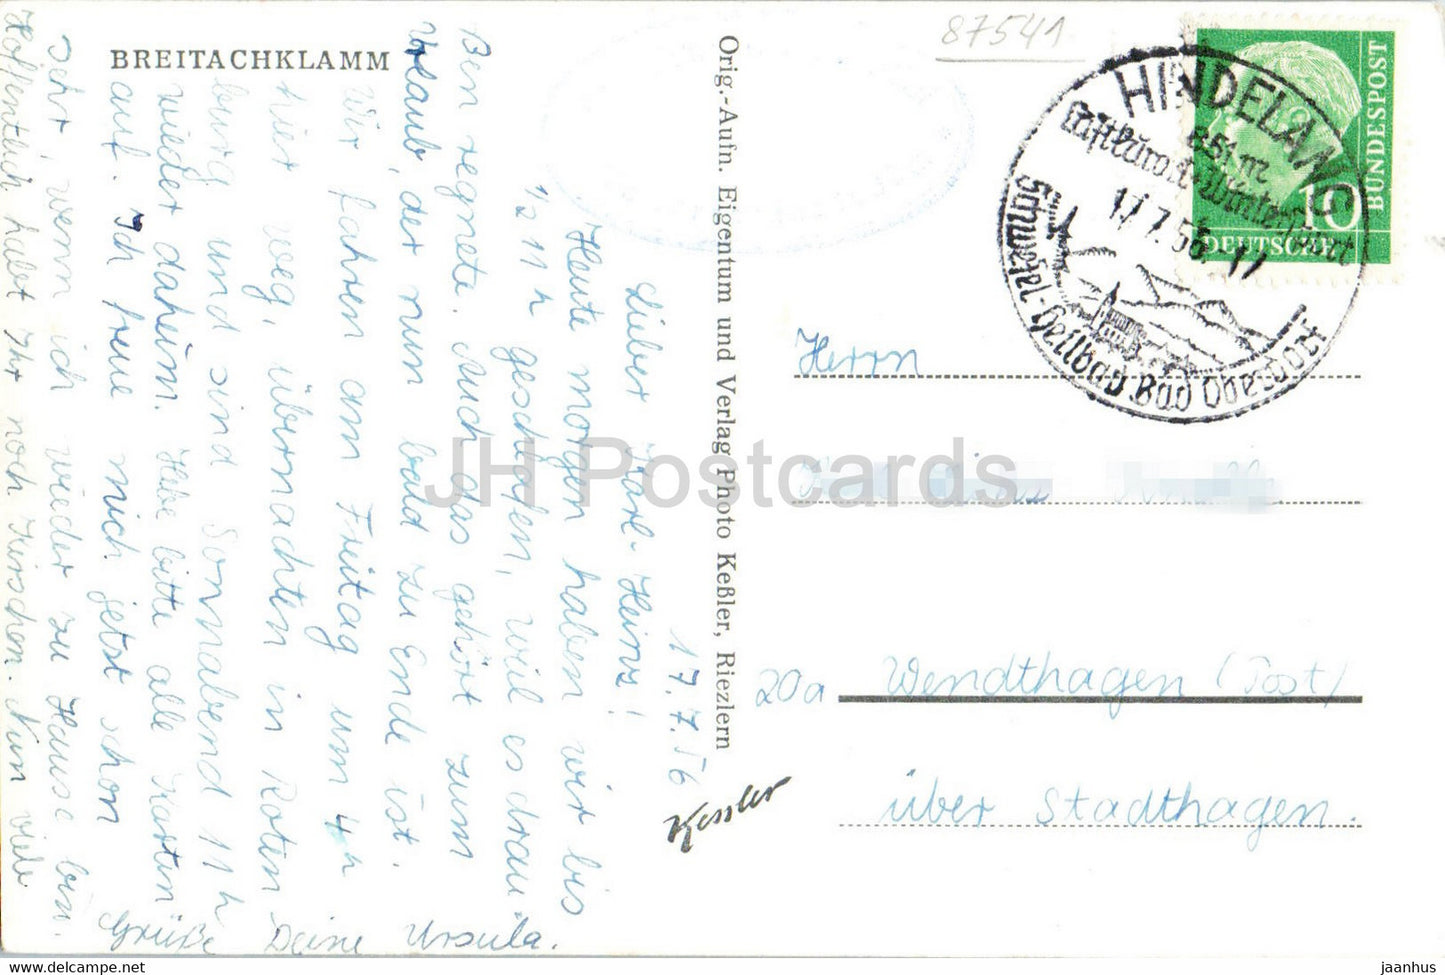 BREITACHKLAMM
17.7.56
Lieber Karl-Heinz!
Heute morgen haben wir bis
½ 11 h geschlafen, weil es drau-
ßen regnete. Auch das gehört zum
Urlaub, der nun bald zu Ende ist.
Wir fahren am Freitag um 4 h
hier weg, übernachten in Roten
burg und sind Sonnabend 11 h
wieder daheim. Hebe bitte alle Karten
auf. Ich freue mich jetzt schon
sehr, wenn ich wieder zu Hause bin.
Hoffentlich habt Ihr noch Kirschen. Nun viele
Grüße Deine Ursula.
Orig.-Aufn. Eigentum und Verlag Photo Keßler, Riezlern
Kessler
87541
HINDELANG
850 m
Luftkurort-Wintersport
17.7.56-17
Schwefel-Heilbad Bad Oberdorf
10
DEUTSCHE
BUNDESPOST
Herrn
20a Wendthagen (Post)
über Stadthagen.
JH Postcards
www.delcampe.net
jaanhus